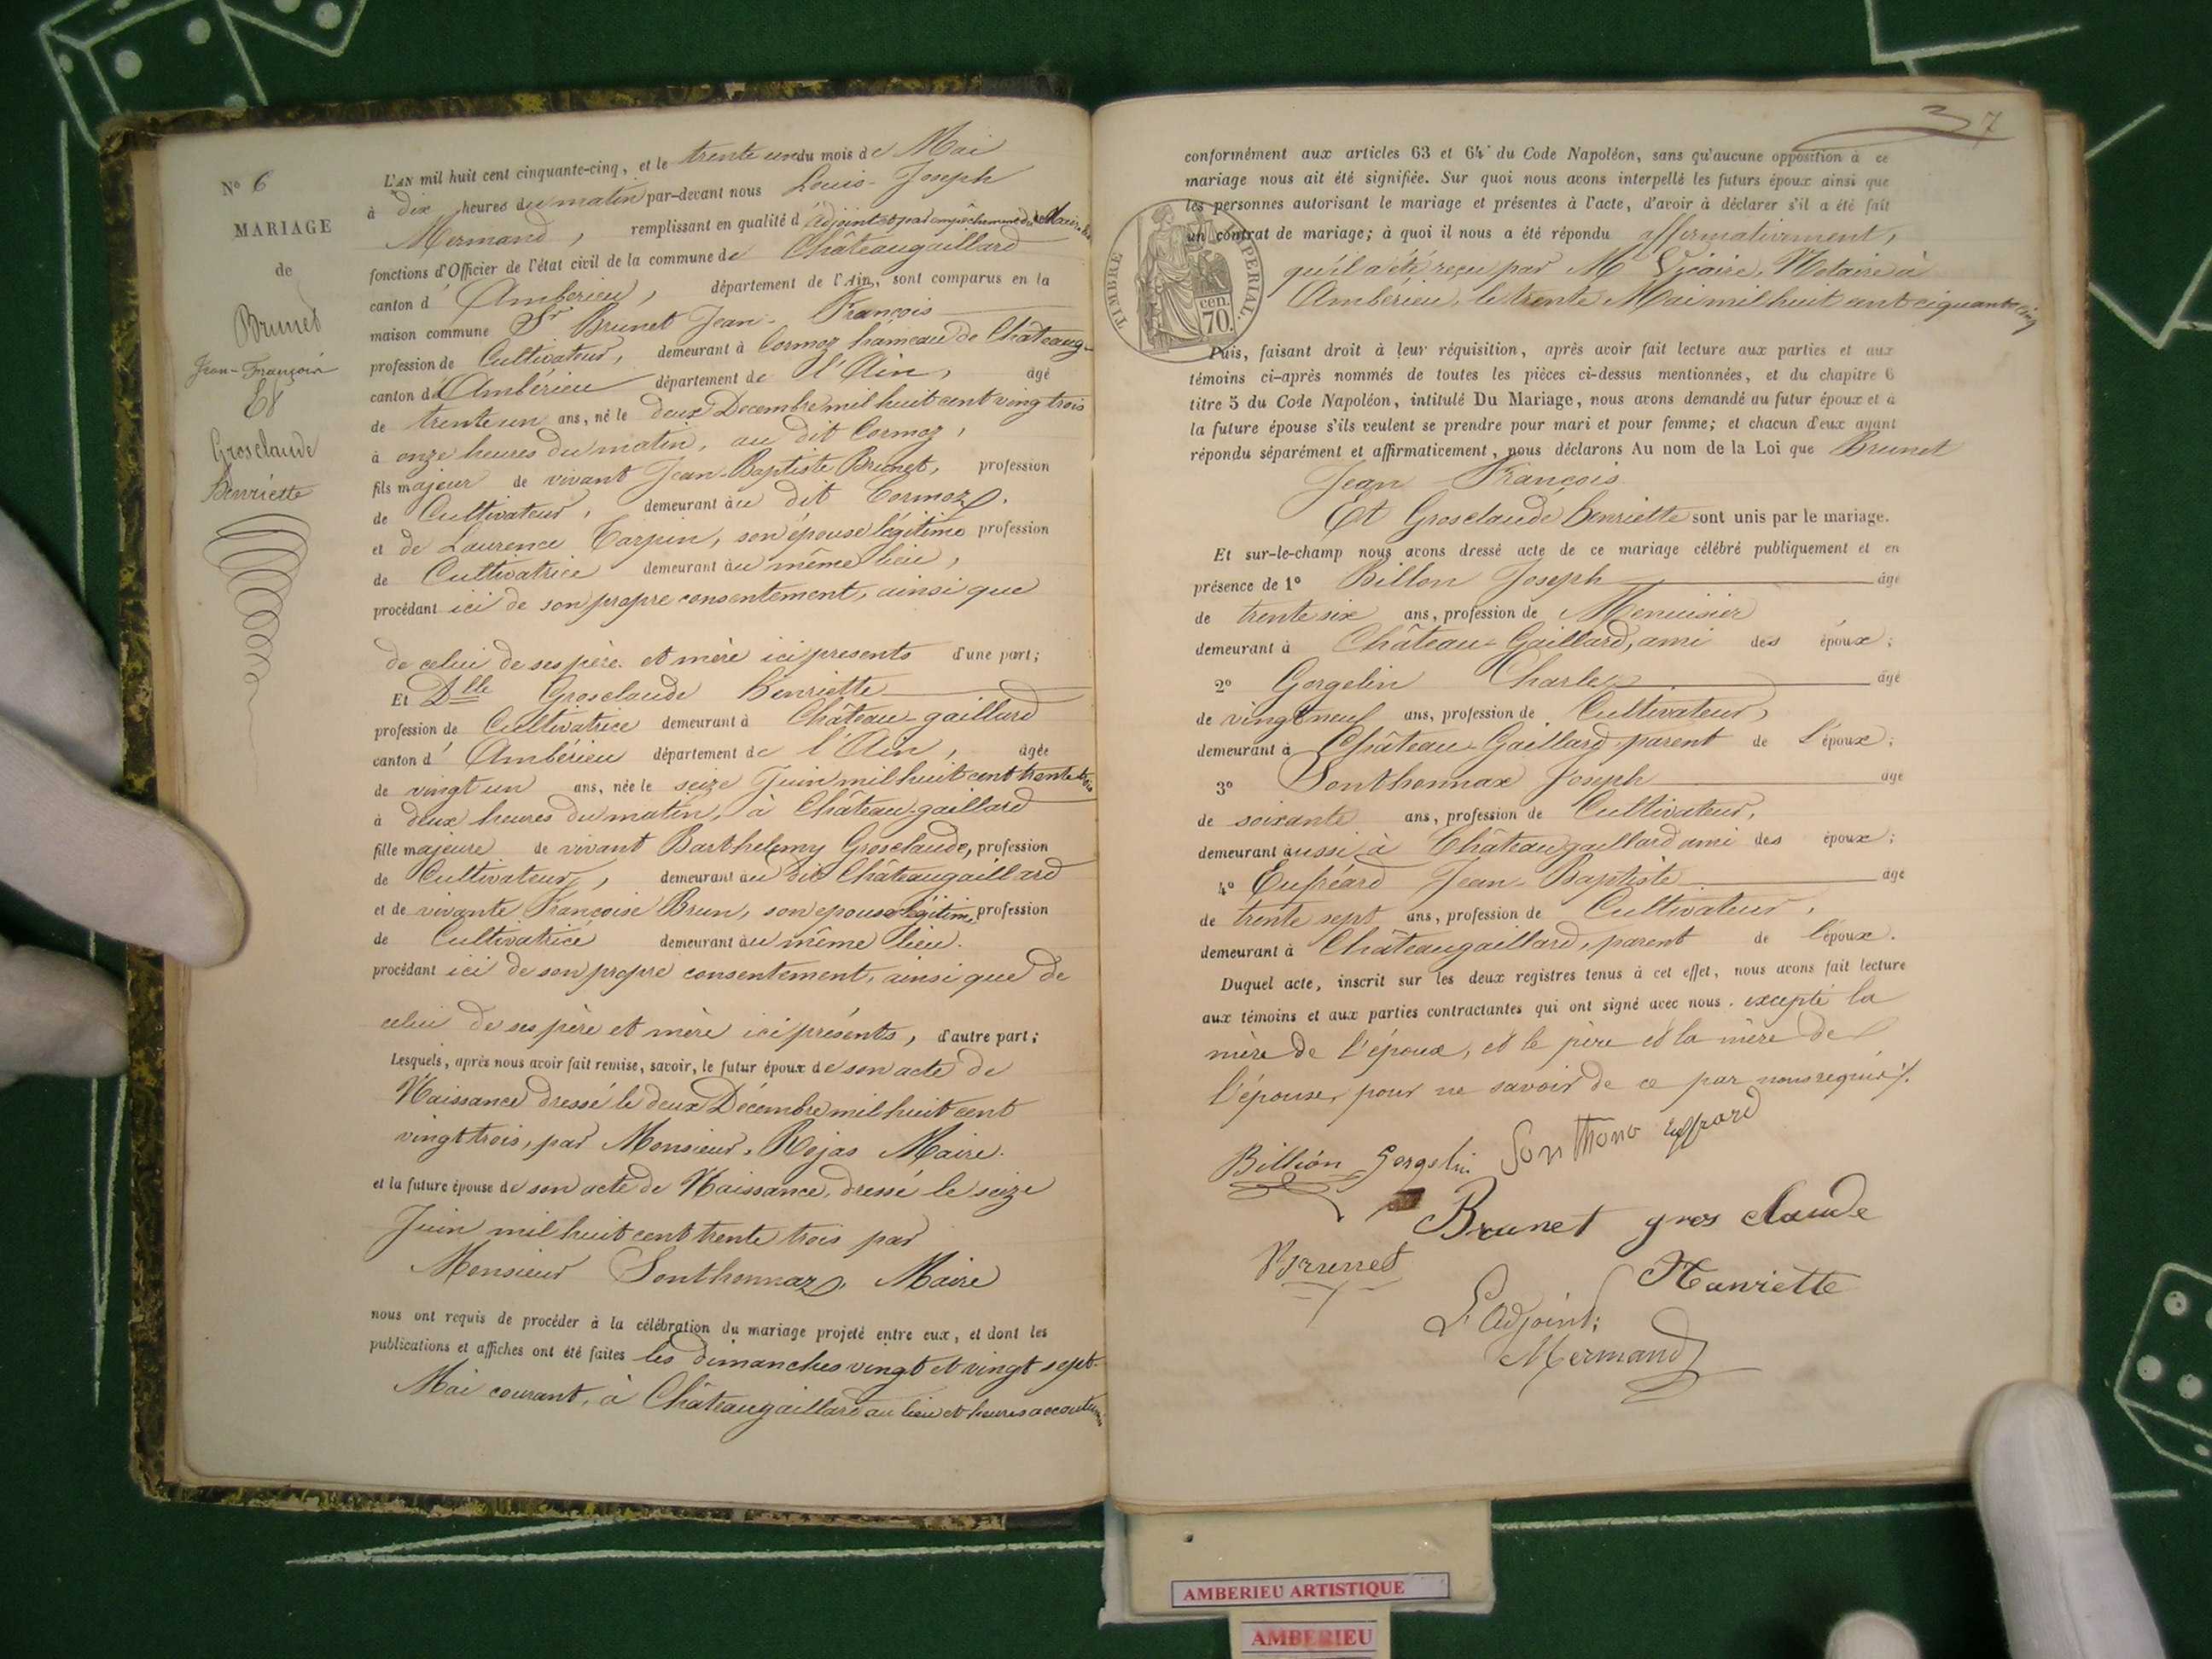 N° 6
MARIAGE
de
Brunet
Jean-François
Et
Grosclaude
Henriette
L'AN mil huit cent cinquante-cinq, et le trente un du mois de Mai
à dix heures du matin par-devant nous Louis-Joseph
Mermand, remplissant en qualité d'adjoint et par empêchement du Maire les
fonctions d'Officier de l'état civil de la commune de Châteaugaillard
canton d'Ambérieu, département de l'Ain, sont comparus en la
maison commune Sr Brunet Jean-François
profession de Cultivateur, demeurant à Cormoz hameau de Châteaug-
canton d'Ambérieu département de l'Ain, âgé
de trente un ans, né le deux Décembre mil huit cent vingt trois
à onze heures du matin, au dit Cormoz,
fils majeur de vivant Jean-Baptiste Brunet, profession
de Cultivateur, demeurant au dit Cormoz,
et de Laurence Tarpin, son épouse légitime profession
de Cultivatrice demeurant au même lieu,
procédant ici de son propre consentement, ainsi que
de celui de ses père et mère ici présents d'une part;
Et Dlle Grosclaude Henriette
profession de Cultivatrice demeurant à Château-gaillard
canton d'Ambérieu département de l'Ain, âgée
de vingt un ans, née le seize Juin mil huit cent trente trois
à deux heures du matin, à Château-gaillard
fille majeure de vivant Barthelemy Grosclaude, profession
de Cultivateur, demeurant au dit Châteaugaillard
et de vivante Françoise Brun, son epouse légitime, profession
de Cultivatrice demeurant au même lieu.
procédant ici de son propre consentement, ainsi que de
celui de ses père et mère ici présents, d'autre part;
Lesquels, après nous avoir fait remise, savoir, le futur époux de son acte de
Naissance dressé le deux Décembre mil huit cent
vingt trois, par Monsieur Rojas Maire.
et la future épouse de son acte de Naissance, dressé le seize
Juin mil huit cent trente trois par
Monsieur Sonthonnax, Maire
nous ont requis de procéder à la célébration du mariage projeté entre eux, et dont les
publications et affiches ont été faites les dimanches vingt et vingt sept
Mai courant, à Châteaugaillard au lieu et heures accoutumés
37
conformément aux articles 63 et 64 du Code Napoléon, sans qu'aucune opposition à ce
mariage nous ait été signifiée. Sur quoi nous avons interpellé les futurs époux ainsi que
les personnes autorisant le mariage et présentes à l'acte, d'avoir à déclarer s'il a été fait
un contrat de mariage; à quoi il nous a été répondu affirmativement,
qu'il a été reçu par Me Vicaire, Notaire à
Ambérieu, le trente Mai mil huit cent ciquante cinq
TIMBRE IMPERIAL.
70 cen.
Puis, faisant droit à leur réquisition, après avoir fait lecture aux parties et aux
témoins ci-après nommés de toutes les pièces ci-dessus mentionnées, et du chapitre 6
titre 5 du Code Napoléon, intitulé Du Mariage, nous avons demandé au futur époux et à
la future épouse s'ils veulent se prendre pour mari et pour femme; et chacun d'eux ayant
répondu séparément et affirmaticement, nous déclarons Au nom de la Loi que Brunet
Jean François
Et Grosclaude Henriette sont unis par le mariage.
Et sur-le-champ nous avons dressé acte de ce mariage célébré publiquement et en
présence de 1° Billon Joseph âgé
de trente six ans, profession de Menuisier
demeurant à Château-Gaillard, ami des époux;
2° Gorgelin Charles âgé
de vingt neuf ans, profession de Cultivateur,
demeurant à Château-Gaillard, parent de l'époux;
3° Sonthonnax Joseph âgé
de soixante ans, profession de Cultivateur,
demeurant aussi à Châteaugaillard ami des époux;
4° Eufréard Jean-Baptiste âgé
de trente sept ans, profession de Cultivateur,
demeurant à Châteaugaillard, parent de l'époux.
Duquel acte, inscrit sur les deux registres tenus à cet effet, nous avons fait lecture
aux témoins et aux parties contractantes qui ont signé avec nous. excepté la
mère de l'époux, et le père et la mère de
l'épouse, pour ne savoir de ce par nous requis.
Billion Gorgelin Sonthona
Brunet gros claude
Brunet Hanriette
L'adjoint;
Mermand
AMBERIEU ARTISTIQUE
AMBERIEU